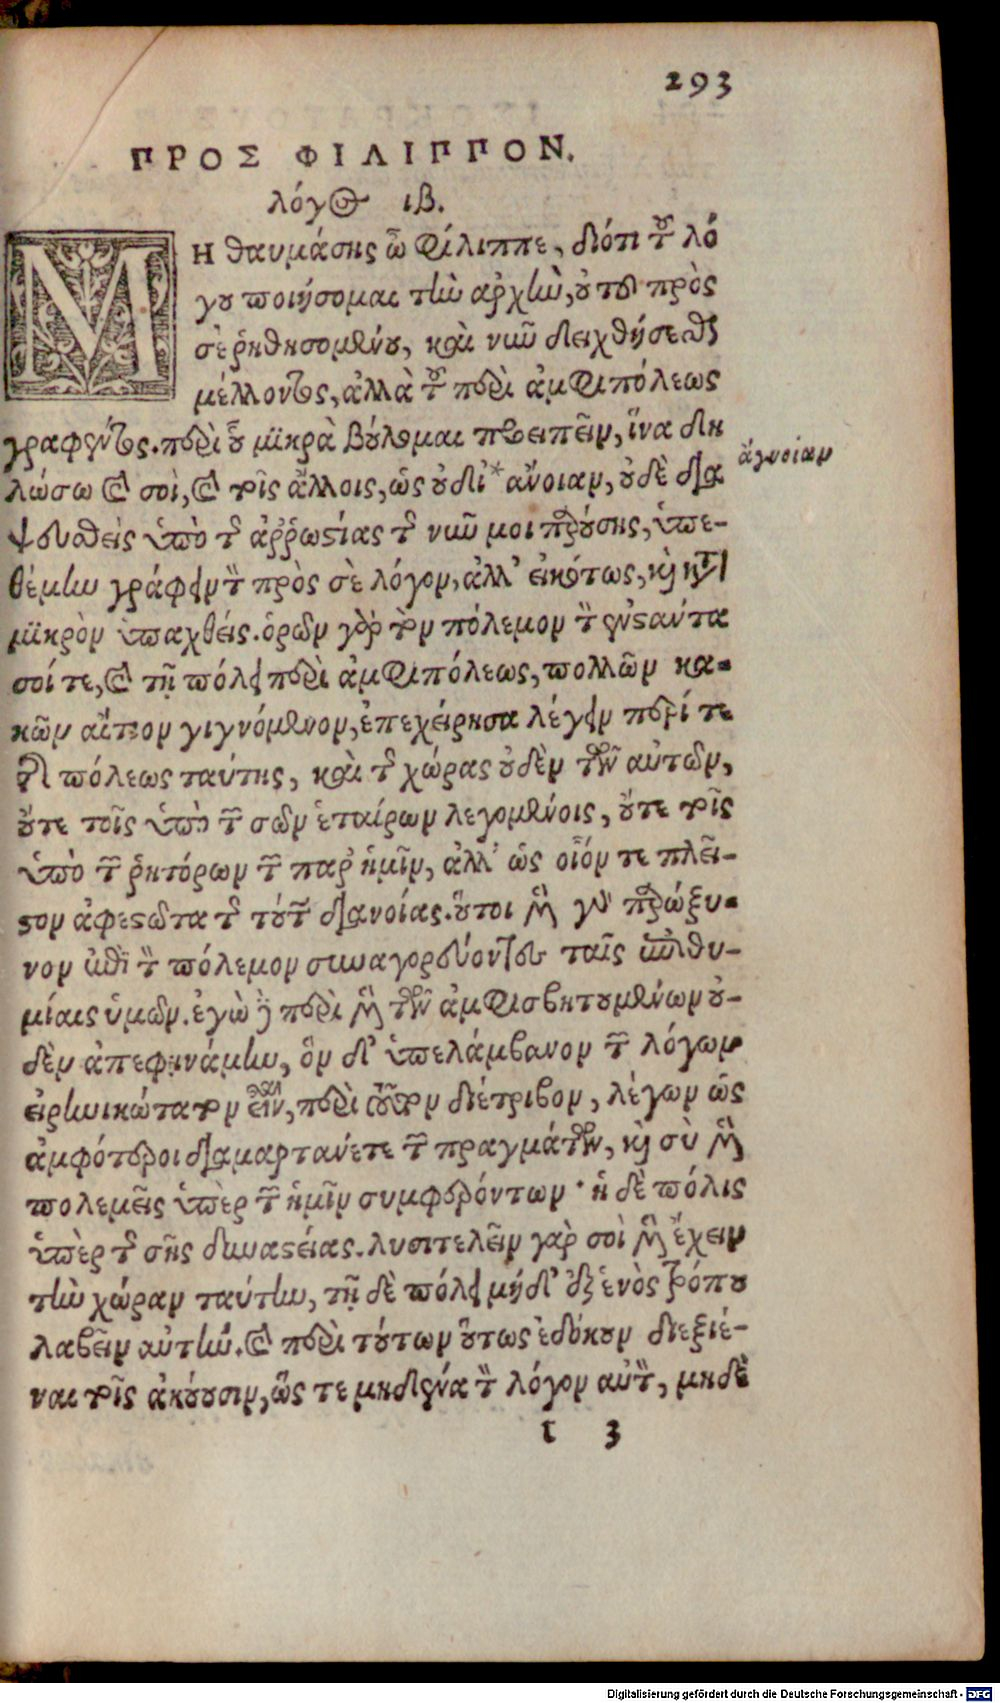 293
ΠΡΟΣ ΦΙΛΙΠΠΟΝ.
λόγος ιβ.
ΜΗ θαυμάσης ὦ Φίλιππε, διότι τοῦ λό
γου ποιήσομαι τὴν ἀρχὴν, οὐ τοῦ πρὸς
σὲ ῥηθησομένου, καὶ νῦν δειχθήσεσθαι
μέλλοντος, ἀλλὰ τοῦ περὶ ἀμφιπόλεως
γραφέντος. περὶ οὗ μικρὰ βούλομαι προειπεῖν, ἵνα δη
λώσω καὶ σοὶ, καὶ τοῖς ἄλλοις, ὡς οὐ δι᾽ * ἄνοιαν, οὐδὲ δια
ἄγνοιαν
ψευσθεὶς ὑπὸ τῆς ἀῤῥωστίας τῆς νῦν μοι παρούσης, ὑπε-
θέμην γράφειν τὸν πρὸς σὲ λόγον, ἀλλ᾽ εἰκότως, καὶ κατὰ
μικρὸν ὑπαχθείς. ὁρῶν γὰρ τὸν πόλεμον τὸν ἐνστάντα
σοί τε, καὶ τῇ πόλει περὶ ἀμφιπόλεως, πολλῶν κα-
κῶν αἴτιον γιγνόμενον, ἐπεχείρησα λέγειν περί τε
τῆς πόλεως ταύτης, καὶ τῆς χώρας οὐδὲν τῶν αὐτῶν,
οὔτε τοῖς ὑπὸ τῶν σῶν ἑταίρων λεγομένοις, οὔτε τοῖς
ὑπὸ τῶν ῥητόρων τῶν παρ᾽ ἡμῖν, ἀλλ᾽ ὡς οἷόν τε πλεῖ-
στον ἀφεστῶτα τῆς τούτων διανοίας. οὗτοι μὲν γὰρ παρώξυ-
νον ἐπὶ τὸν πόλεμον συναγορεύοντες ταῖς ἐπιθυ-
μίαις ὑμῶν. ἐγὼ δὲ περὶ μὲν τῶν ἀμφισβητουμένων οὐ-
δὲν ἀπεφηνάμην, ὃν δ᾽ ὑπελάμβανον τῶν λόγων
εἰρηνικώτατον εἶναι, περὶ τοῦτον διέτριβον, λέγων ὡς
ἀμφότεροι διαμαρτάνετε τῶν πραγμάτων, καὶ σὺ μὲν
πολεμεῖς ὑπὲρ τῶν ἡμῖν συμφερόντων · ἡ δὲ πόλις
ὑπὲρ τῆς σῆς δυναστείας. λυσιτελεῖν γὰρ σοὶ μὲν ἔχειν
τὴν χώραν ταύτην, τῇ δὲ πόλει μήδ᾽ ἐξ ἑνὸς τρόπου
λαβεῖν αὐτήν. καὶ περὶ τούτων οὕτως ἐδόκουν διεξιέ-
ναι τοῖς ἀκούουσιν, ὥς τε μηδένα τὸν λόγον αὐτῶν, μηδὲ
t 3
Digitalisierung gefördert durch die Deutsche Forschungsgemeinschaft - DFG